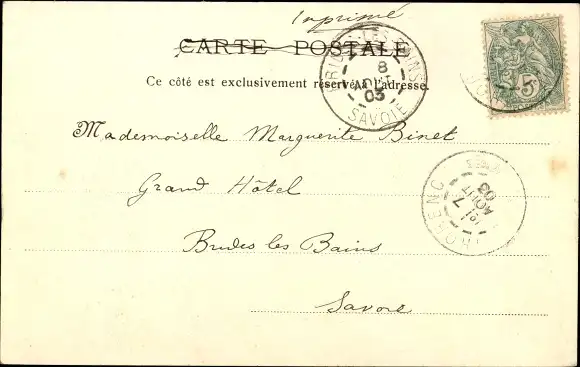 Imprimé
CARTE POSTALE
Ce côté est exclusivement réservé à l'adresse
BRIDES-LES-BAINS
8
AOUT
03
SAVOIE
5c
Mademoiselle Marguerite Binet
Grand Hôtel
Brides les Bains
Savoie
7
AOUT
03